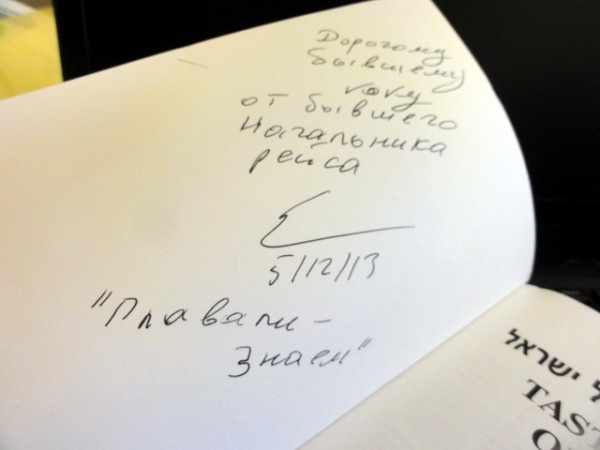 Дорогому
бывшему
коку
от бывшего
Начальника
рейса
5/12/13
"Плавали -
Знаем"
ישראל